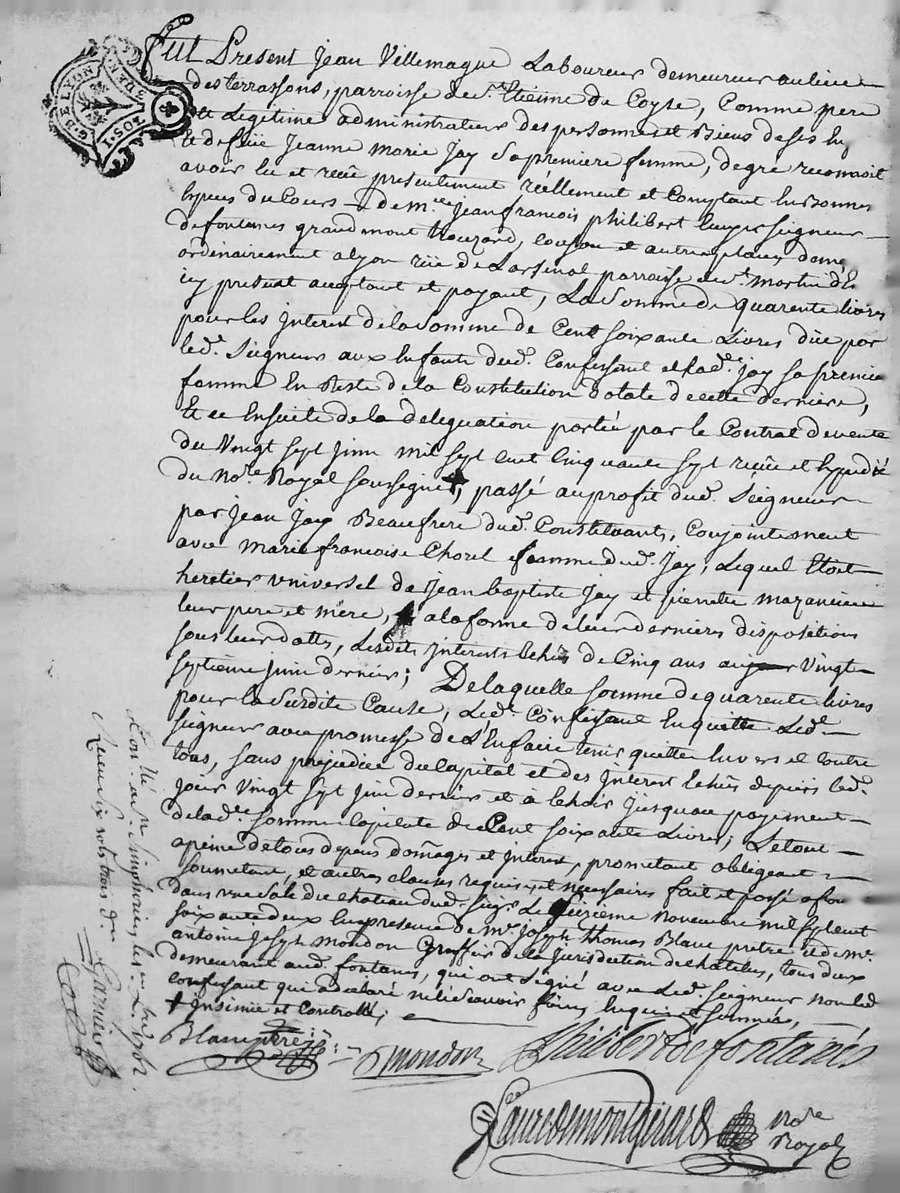 G. DE LYON
DUEN.
1. SOL
Fut Present Jean Villemagne Laboureur demeurant au lieu
des terrassons, parroisse de St. Etienne de Coyse, Comme pere
et Legitime administrateur des personnes et Biens de ses
et de feüe Jeanne Marie Jay sa premiere femme, de gré reconnoit
avoir eu et reçu presentement réellement et Comptant en bonnes
espèces du Cours de Mre. jean francois philibert ecuyer seigneur
de fontanes grandmont et autres places dem.
ordinairement a Lyon rüe de Larsenal parroisse de St. Martin
icy present acceptant et payant, La Somme de quarente livres
pour les Interest de la Somme de Cent soixante Livres düe par
led. Seigneur aux Enfants dud. Confessant et de lad. Jay sa premiere
femme En Reste de la Constitution dotale de cette derniere,
Et ce Ensuite de la deleguation portée par le Contrat de vente
du Vingt sept Juin mil sept cent cinquante sept reçu et Expedié
du Nore. Royal soussigné +, passé au profit dud. Seigneur
par jean Jay Beaufrere dud. Constituants, Conjointement
avec Marie francoise Chorel femme dud. Jay, Lequel Etoit
heretier universel de jean baptiste Jay et pierrette
leur pere et mere, a la forme de leur dernieres dispositions
sous leur dattes, Lesdits Interests Echus de Cinq ans au Vingt
septieme juin dernier; De laquelle somme de quarente livres
pour la Surdite Cause, Led. Confessant En quitte Led.
seigneur avec promesse de L'En faire tenir quitte Envers et Contre
tous, sans prejudice du Capital et des Interest Echus depuis led.
jour Vingt sept juin dernier et à Echoir jusquau payement
de lad. somme Capitale de Cent soixante Livres; Le tout
a peine de tous depens domages et interest, prometant obligeant
soumetant, et autres clauses requises et necessaires fait et passé a fon
dans une sale du chatiau dud. seigr. Le seizieme Novembre mil sept cent
soixante deux En presence de Mre. Joseph Thomas Blanc pretre et de Mr.
antoine Joseph Mondon Greffier de la jurisdiction de chatelus, tous deux
demeurant aud. fontanes, qui ont signé avec Led. seigneur non led.
confessant qui a declaré ne le Scavoir faire, Enquis et sommée,
+ Insinué et Controllé;
Blanc ptre
Mondon
Philibert de fontanés
Faure de montgirard
Nore
Royal
Con. lé en St. Simphorien le 1762.
Reçu six sols
Garnier